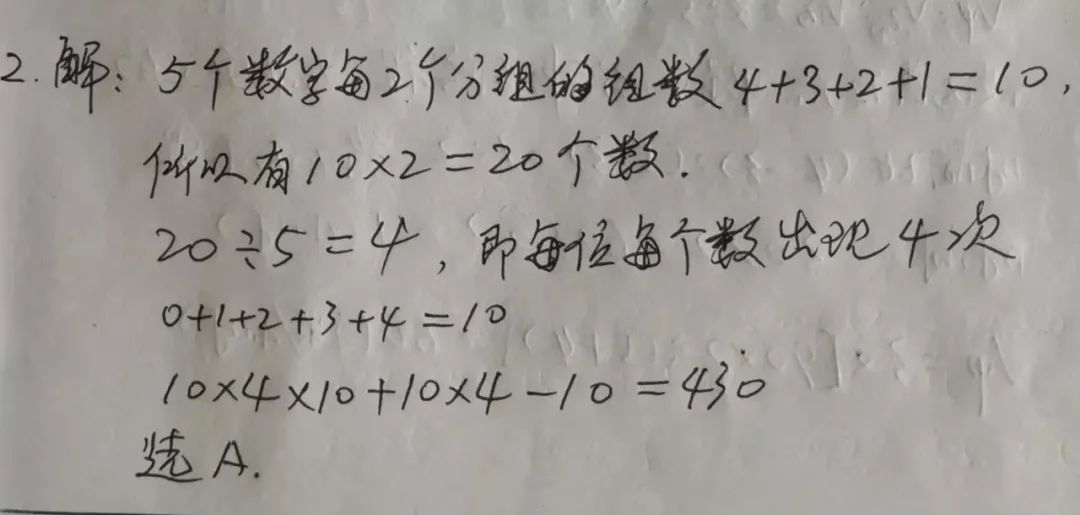 2. 解: 5个数字每2个分组的组数 4+3+2+1=10,
所以有10×2=20个数.
20÷5=4, 即每位每个数出现4次
0+1+2+3+4=10
10×4×10+10×4-10=430
选A.